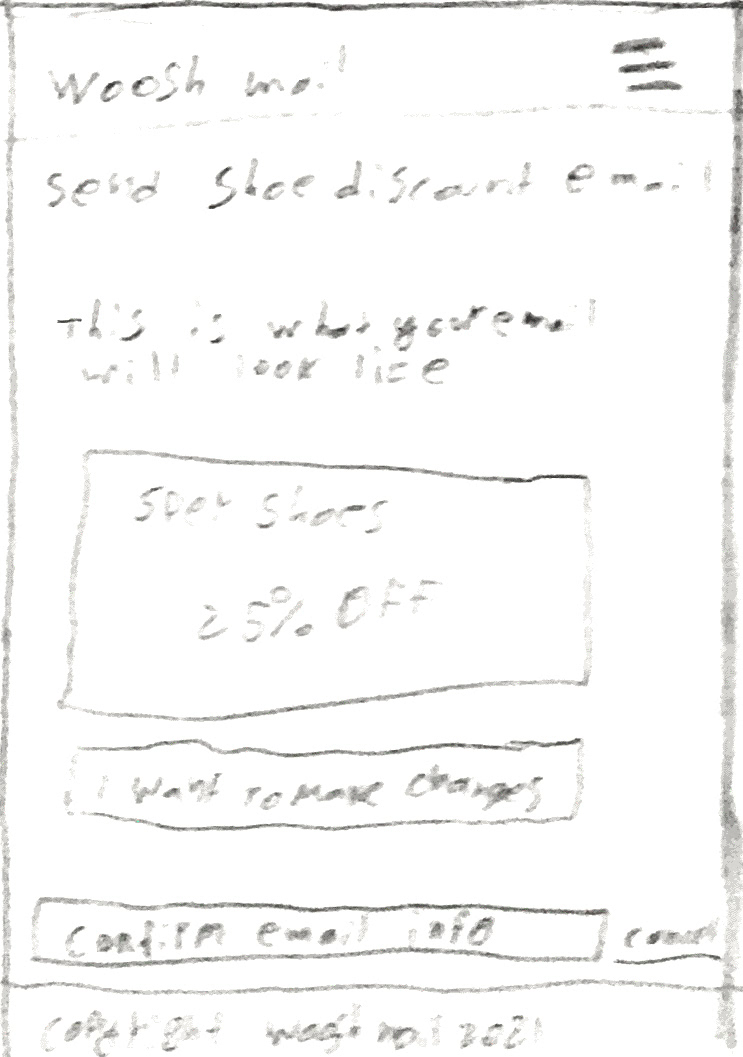 Woosh mail
Send Shoe discount email
This is what your email
will look like
Sper Shoes
25% OFF
I want to make changes
Confirm email info
cancel
Copyright woosh mail 2021